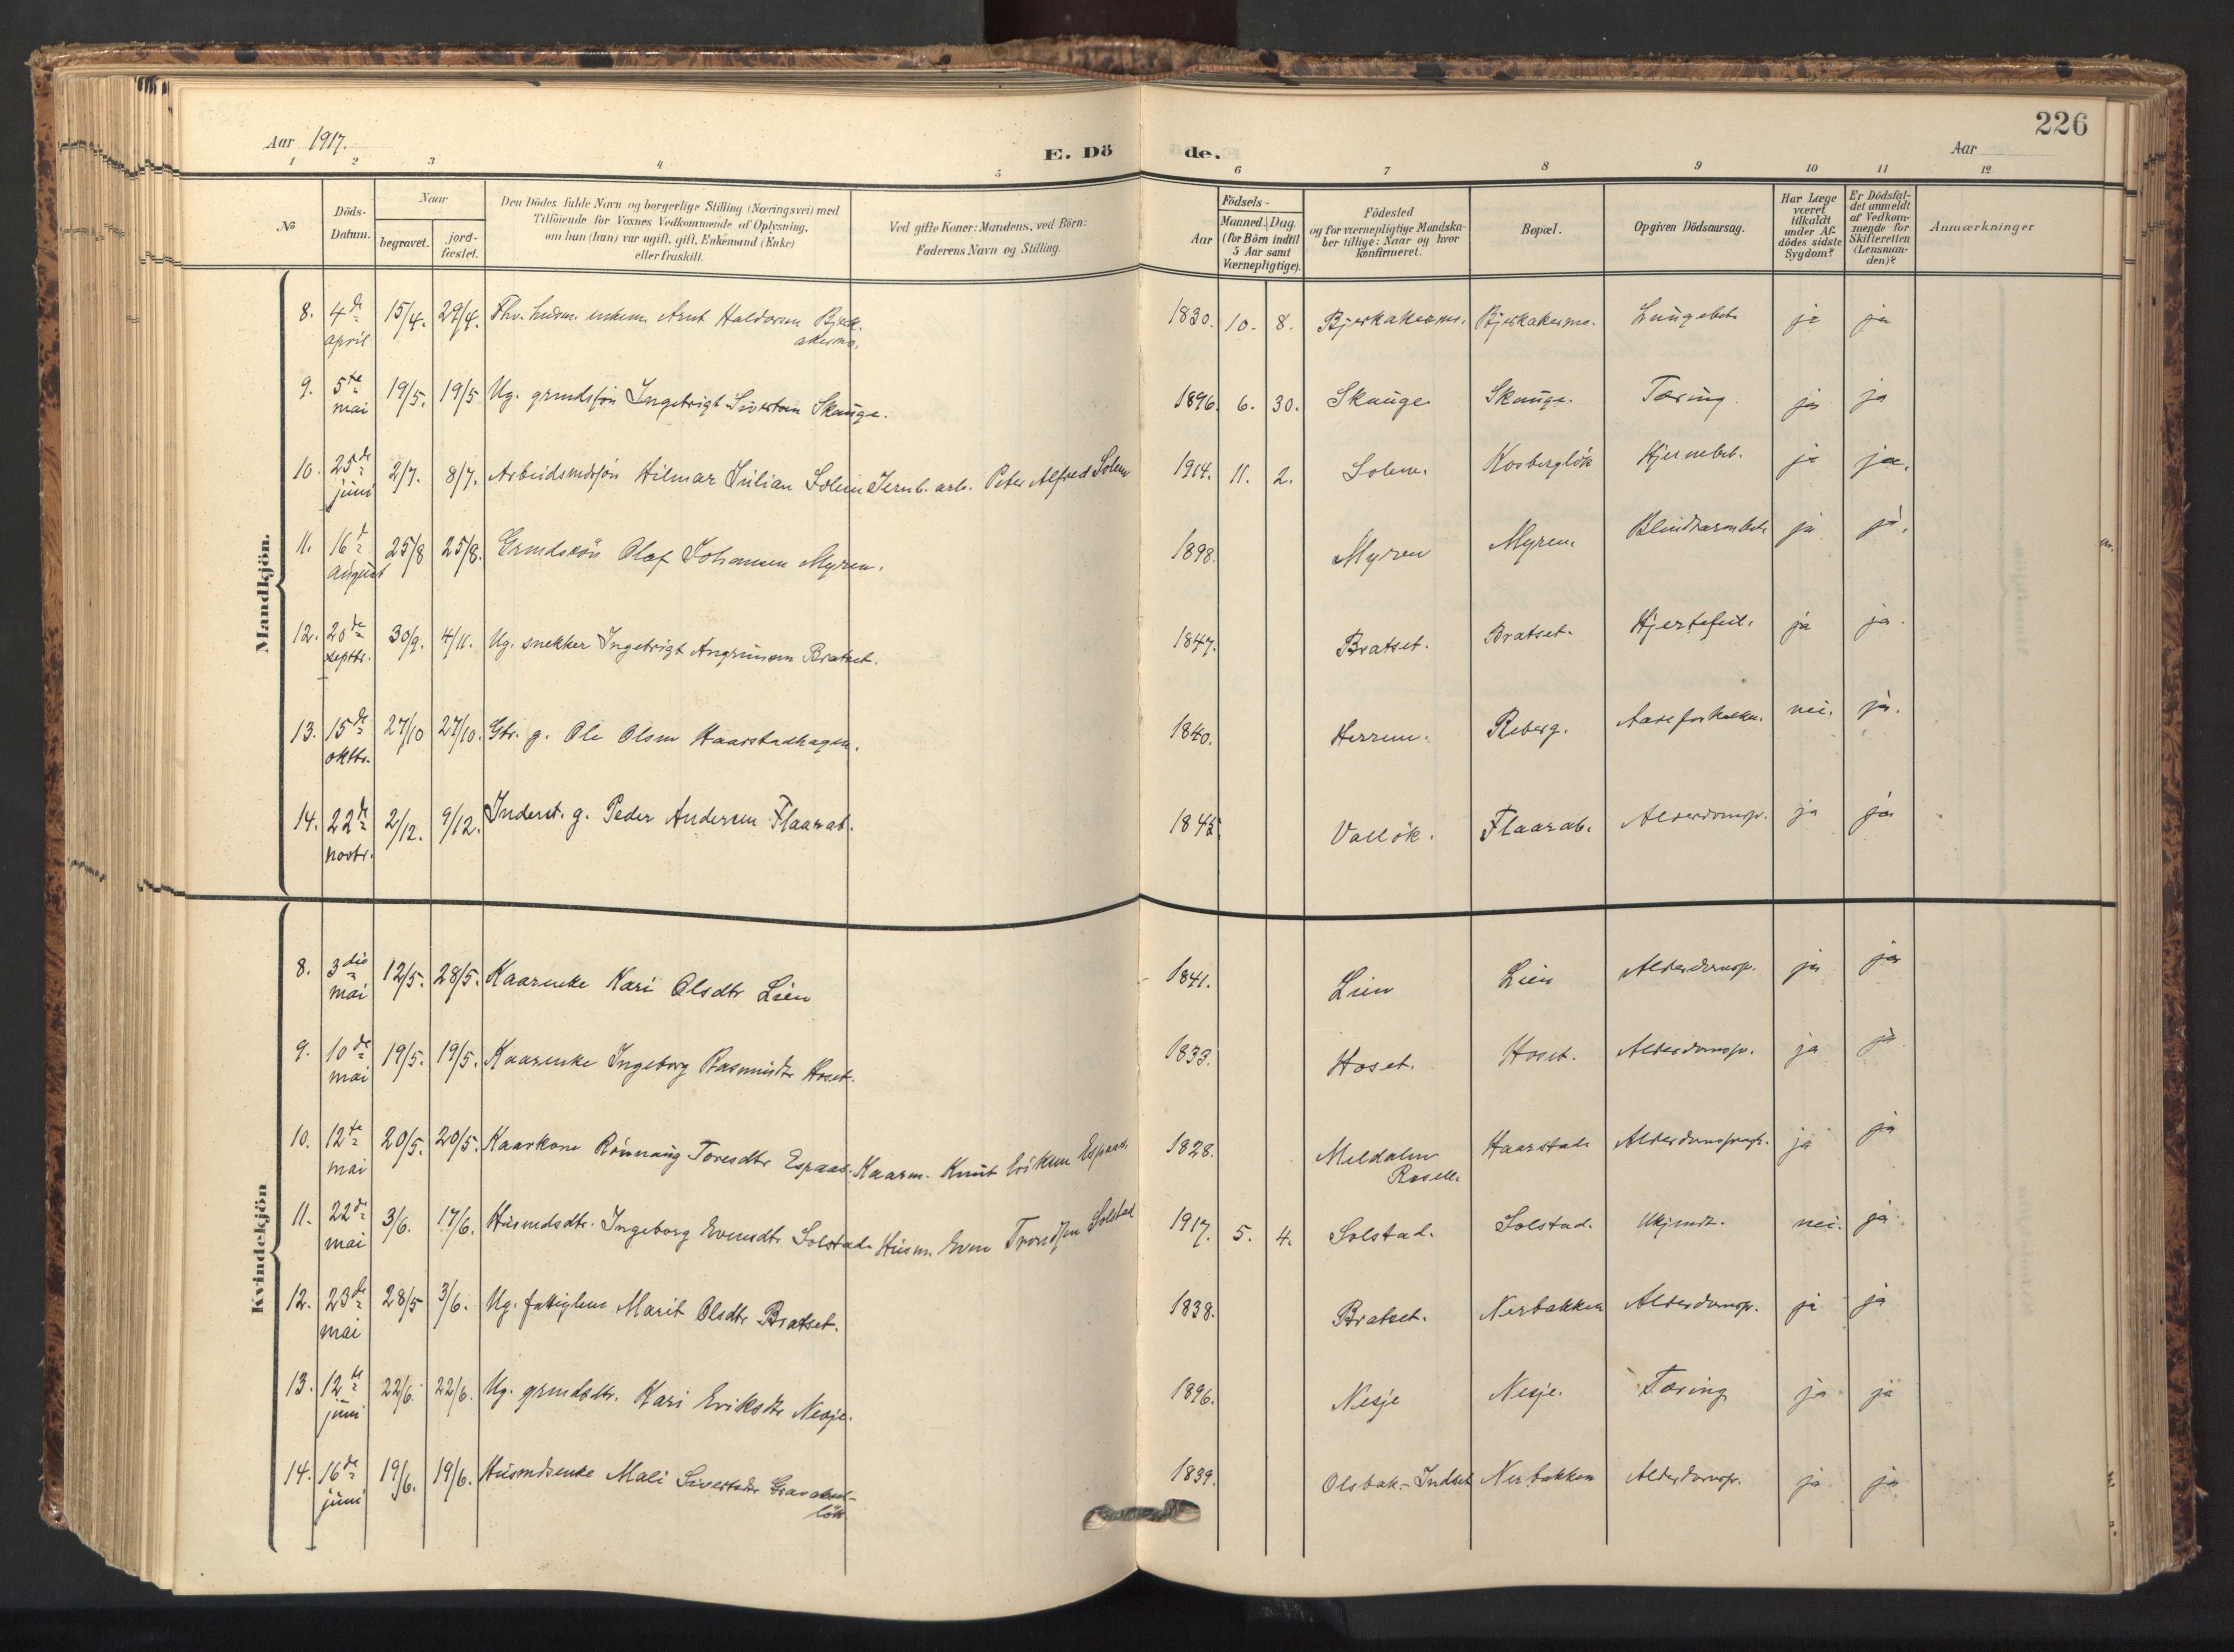 226
Aar 1917.
E. Döde.
Aar
1 2 3 4 5 6 7 8 9 10 11 12
No
Döds-Datum.
Naar
begravet.
jordfæstet.
Den Dödes fulde Navn og borgerlige Stilling (Næringsvei) med
Tilföiende for Voxnes Vedkommende af Oplysning,
om han (hun) var ugift, gift, Enkemand (Enke)
eller fraskilt.
Ved gifte Koner: Mandens, ved Börn:
Faderens Navn og Stilling.
Födsels-
Aar
Maaned. Dag.
(for Börn indtil
5 Aar samt
Værnepligtige).
Födested
og for værnepligtige Mandska-
ber tillige: Naar og hvor
konfirmeret.
Bopæl.
Opgiven Dödsaarsag.
Har Læge
været
tilkaldt
under Af-
dödes sidste
Sygdom?
Er Dödsfal-
det anmeldt
af Vedkom-
mende for
Skifteretten
(Lensman-
den)?
Anmærkninger
Mandkjön.
8. 4de april 15/4. 29/4. Fhv. husm. enkem. Arnt Haldorsen Bjerk-akermo. 1830. 10. 8. Bjerkakermo. Bjerkakermo. Lungebet. ja ja
9. 5te mai 19/5. 19/5 Ug. grmdsøn Ingebrigt Sivertsen Skauge. 1896. 6. 30. Skauge. Skauge. Tæring. ja ja
10. 25de juni 2/7. 8/7. Arbeidsmdsøn Hilmar Julian Solem Jernb. arb. Peter Alfred Solem 1914. 11. 2. Solem. Kosberglök Hjernebet. ja ja.
11. 16de august 25/8 25/8. Grmdssön Olaf Johansen Myren. 1898. Myren Myren. Blindtarmbet. ja ja.
12. 20de septbr. 30/9. 4/11. Ug. snekker Ingebrigt Bratset. 1847. Bratset. Bratset. Hjertefeil. ja ja.
13. 15de oktbr. 27/10 27/10. Gbr. g. Ole Olsen Haarstadhagen. 1840. Herrem. Reberg. Aareforkalkn. nei. ja.
14. 22de novbr. 2/12. 9/12. Inderst. g. Peder Andersen Flaarat. 1845. Vallök. Flaarat. Alderdomsv. ja ja
Kvindekjön
8. 3die mai 12/5. 28/5. Kaarenke Kari Olsdtr Lien 1841. Lien Lien Alderdomsv. ja ja
9. 10de mai 19/5. 19/5. Kaarenke Ingeborg Rasmusdtr Hoset. 1833. Hoset. Hoset. Alderdomsv. ja ja
10. 12te mai 20/5. 20/5. Kaarkone Rönnaug Toresdtr Espaas. Kaarm. Knut Eriksen Espaas. 1828. Meldalen Haarstad. ja ja
11. 22de mai 3/6. 17/6. Husmdsdtr. Ingeborg Evensdtr Solstad. Husm. Even Trondsen Solstad 1917. 5. 4. Solstad. Solstad. Ukjendt. nei. ja
12. 23de mai 28/5 3/6. Ug. fattiglem Marit Olsdtr Bratset. 1838. Bratset. Nerbakken Alderdomsv. ja ja
13. 12te juni 22/6. 22/6. Ug. grmdsdtr. Kari Eriksdtr Nesje. 1896. Nesje Nesje. Tæring ja ja
14. 16de juni 19/6. 19/6. Husmdsenke Mali Sivertsdtr 1839. Olsbak-Indset Nerbakken Alderdomsv. ja ja